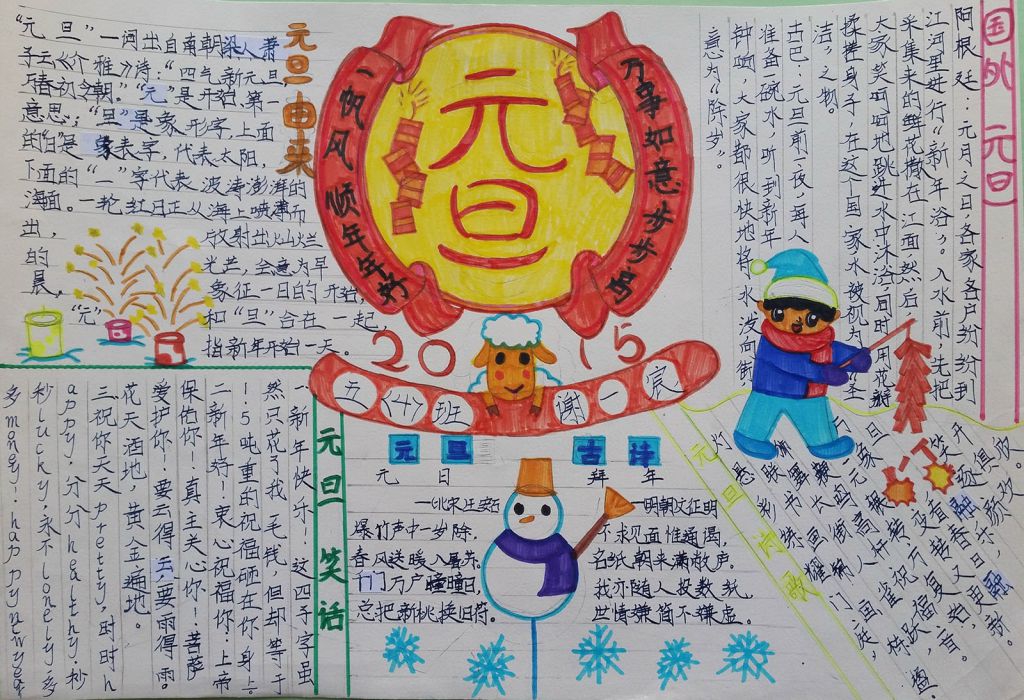 元旦由来
“元旦”一词出自南朝梁人萧
子云《介雅》诗：“四气新元旦
寿初今朝。”“元”是开始，第一
意思；“旦”是象形字，上面
的“日”是象表字，代表太阳，
下面的“一”字代表波涛澎湃的
海面。一轮红日正从海上喷薄而
出，放射出灿烂
的光芒，会意为早
晨，象征一日的开始，
“元”和“旦”合在一起，
指新年开始一天。
一帆风顺年年好
元旦
万事如意步步高
2015
五〈4〉班
谢一宸
国外元旦
阿根廷：元月之日，各家各户纷纷到
江河里进行“新年浴”。入水前，先把
采集来的鲜花撒在江面，然后，
大家笑呵呵地跳进水中沐浴，同时用花瓣
揉搓身子，在这个国家水被视为“圣
洁”之物。
古巴：元旦前一夜，每人
准备一碗水，听到新年
钟响，大家都很快地将水泼向街，
意为“除岁”。
元旦笑话
一、新年快乐！这四字虽
然只花了我一毛钱，但却等于
1.5吨重的祝福砸在你身上
二、新年好！衷心祝福你！上帝
保佑你！真主关心你！菩萨
爱护你！要云得云，要雨得雨。
花天酒地，黄金遍地。
三、祝你天天pretty，时时h
appy，分分healthy，秒
秒lucky，永不lonely，多
多money！happynewyea
元旦古诗
元日
—北宋王安石
爆竹声中一岁除，
春风送暖入屠苏。
千门万户曈曈日，
总把新桃换旧符。
拜年
—明朝文征明
不求见面惟通谒，
名纸朝来满敝庐。
我亦随人投数纸，
世情嫌简不嫌虚。
元旦诗歌